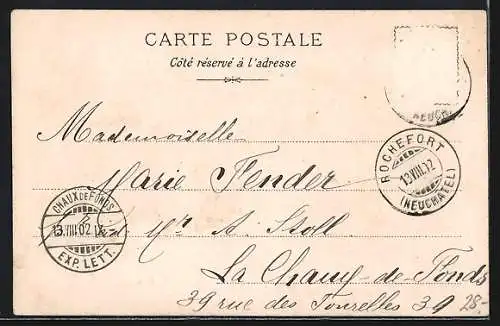 CARTE POSTALE
Côté réservé à l'adresse
NEUCH
ROCHEFORT
13.VIII.02
(NEUCHATEL)
Mademoiselle
Marie Fender
CHAUX DE FONDS
13.VIII.02 IX
EXP. LETT.
A. Stoll
La Chaux-de-Fonds
39 rue des Tourelles 39
28-